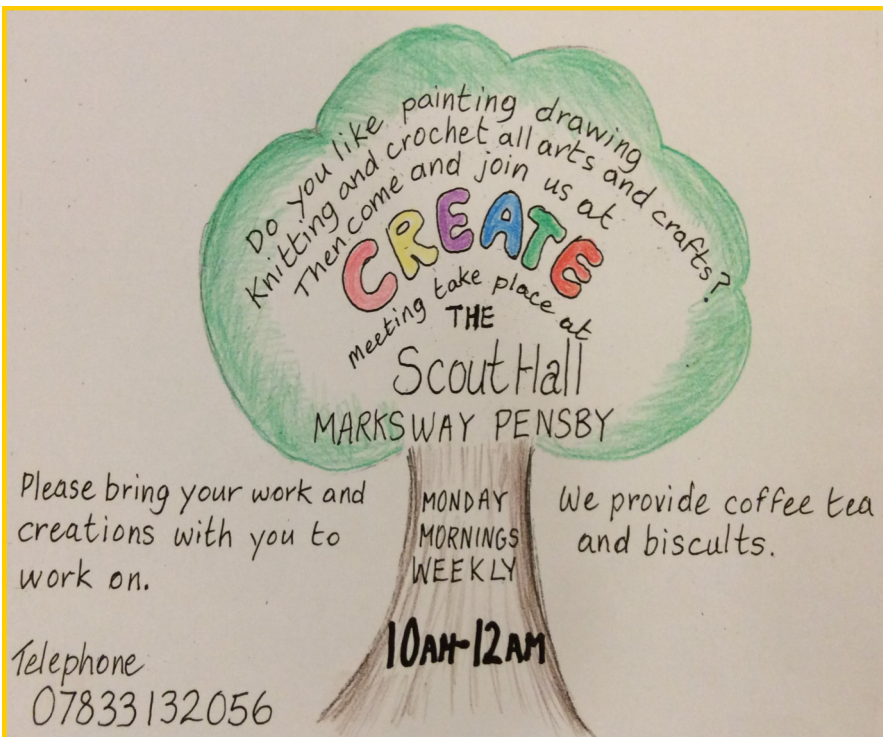 Do you like painting drawing
Knitting and crochet all arts and crafts?
Then come and join us at
CREATE
meeting take place at
THE
Scout Hall
MARKSWAY PENSBY
Please bring your work and
creations with you to
work on.
MONDAY
MORNINGS
WEEKLY
We provide coffee tea
and biscults.
10AM-12AM
Telephone
07833132056